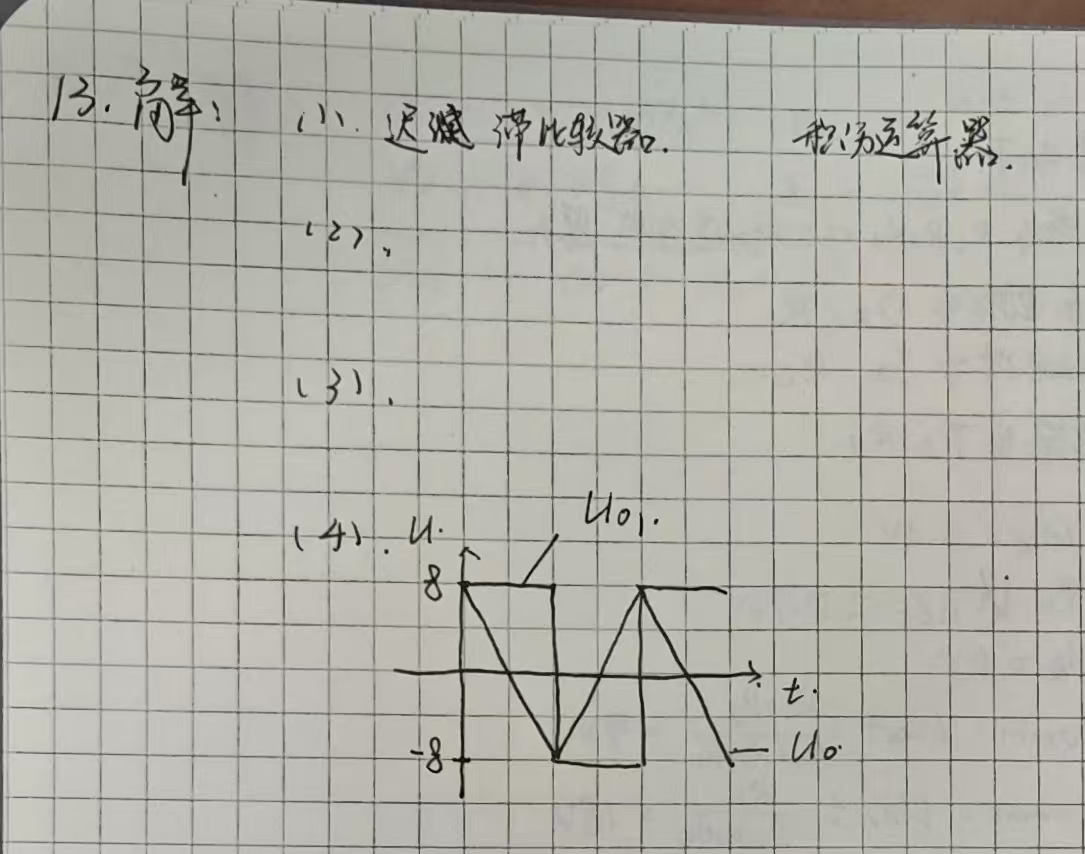 13. 解: (1). 迟滞比较器. 积分运算器.
(2).
(3).
(4). U. U01.
8
t.
-8 U0.